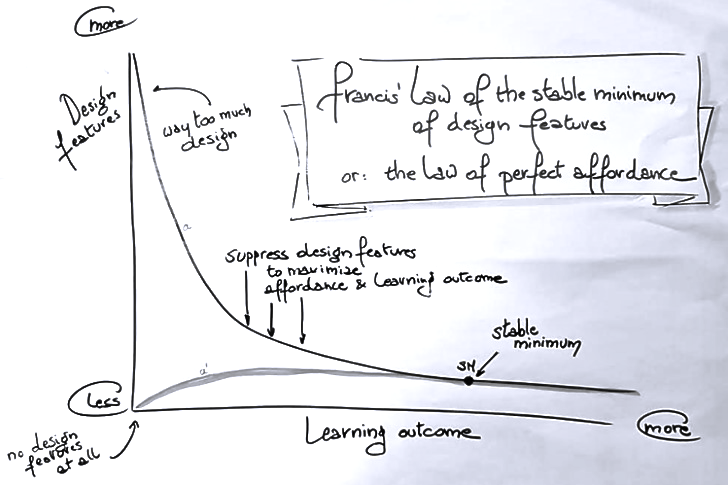 more
Design
features
way too much
design
Francis' Law of the stable minimum
of design features
or: the law of perfect affordance
a
suppress design features
to maximise
affordance & Learning outcome
stable
minimum
SM
a'
Less
Learning outcome
more
no design
features
at all